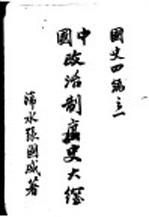 國史四編之一
中國政治制度史大綱
浠水張國威著